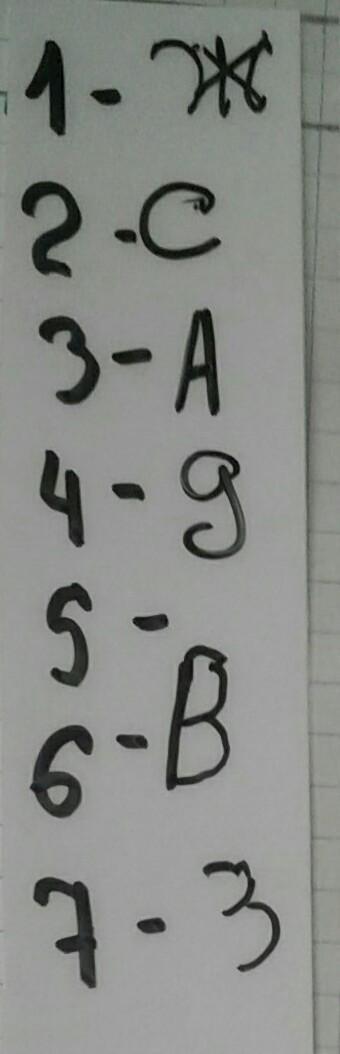 1 - Ж
2 - С
3 - А
4 - g
5 -
6 - В
7 - З